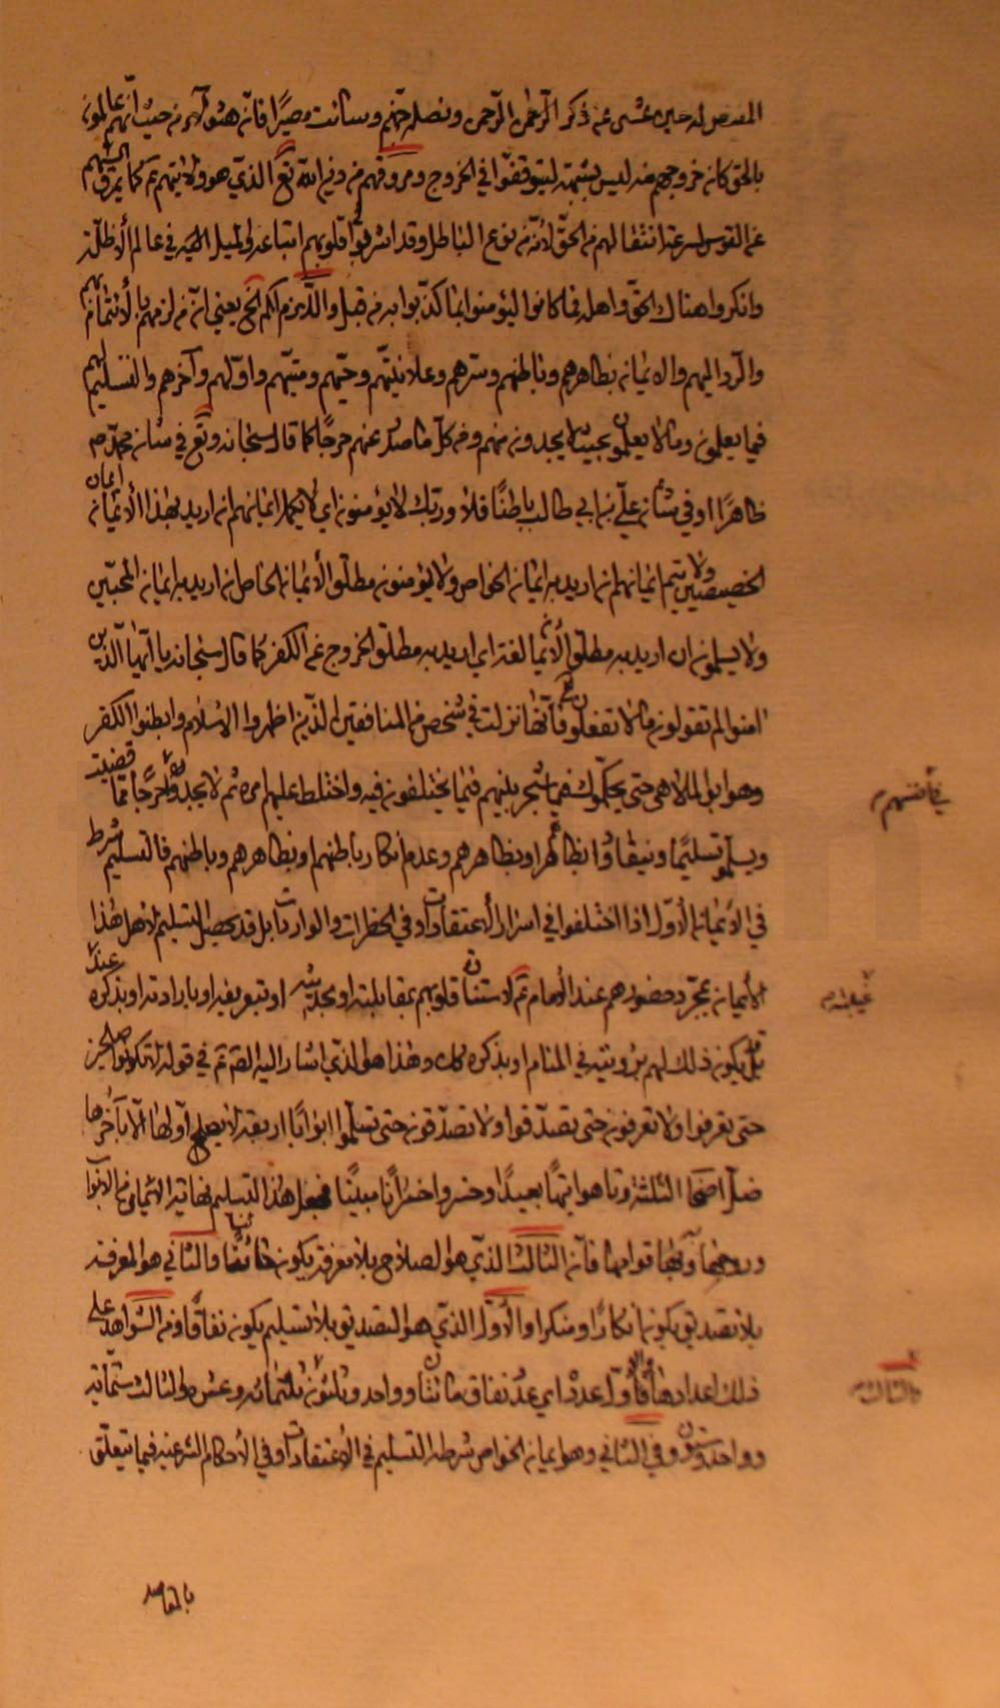 المقيض له حين عشى عن ذكر الرّحمن الرّحمن ونصله جهنّم وسائت مصيرًا فانّ هؤلاء من حيث انّهم عالمون
بالحق كان خروجهم منه ليس بشبهة ليتوقفوا في الخروج ومروقهم من دين الله تع الذي هو ولايتهم ثم كما يمرق السّهم
عن القوس لسرعة انتقالهم من الحقّ لانّه من نوع الباطل وقد اشربوا في قلوبهم اتباعه والميل اليه في عالم الأظلّة
وانكروا هناك الحق واهله فما كانوا ليؤمنوا بما كذّبوا به من قبل والذي يلزمكم الخ يعني انّ من لزمهم بالأئتمام بهم
والرد اليهم والايمان بظاهرهم وباطنهم وسرّهم وعلانيّتهم وحيّهم وميّتهم واوّلهم وآخرهم والتسليم لهم
فيما يعلمون ومالا يعلمون بحيث لا يجدون منهم ومن كلّ ما صدر عنهم حرجًا كما قال سبحانه وتع في شان محمّد ص
ظاهرًا او في شان عليّ بن ابي طالب باطنًا فلا وربّك لا يؤمنون اي لا يكمل ايمانهم ان اريد بهذا الأيمان ايمان
الخصيصين ولا يتم ايمانهم ان اريد به ايمان الخواص ولا يؤمنون مطلق الأيمان الخاص ان اريد به ايمان المحبّين
ولا يسلمون ان اريد به مطلق الأيمان لغة اي اريد به مطلق الخروج عن الكفر كما قال سبحانه يا ايّها الّذين
امنوا لم تقولون مالا تفعلون فانّها نزلت في شخص من المنافقين الذين اظهروا الاسلام وابطنوا الكفر
وهو ابو الملاهى حتى يحكّموك فيما شجر بينهم فيما يختلفون فيه واختلط عليهم امره ثم لا يجدوا حرجًا ممّا قضيت
في انفسهم
ويسلّموا تسليمًا وينقادوا ظاهرا بظاهرهم وعدم انكار باطنهم او بظاهرهم وباطنهم فالتسليم شرط
في الأيمان الأوّل اذا اختلفوا في اسرار الأعتقادات وفي الخطرات والواردات بل قد يحصل التسليم لأهل هذا
الأيمان بمجرّد حضورهم عند الأمام ثم لاستنارة قلوبهم بمقابلته او بحديثه او بتعريفه او بارادته او بذكره عند
بل يكون ذلك لهم برؤيته في المنام او بذكره لك وهذا هو الذي اشار اليه الصّ ثم في قوله لا تكونوا صالحين
حتى تعرفوا ولا تعرفون حتى تصدّقوا ولا تصدّقون حتى تسلّموا ابوابًا اربعة لا يصلح اوّلها الّا بآخرها
ضلّ اصحاب الثلثة وتاهوا تيهًا بعيدًا وخسروا خسرانًا مبينًا فجعل هذا التسليم نهاية الأيمان الابواب
وبها قوامها فانّ الثالث الذي هو الصلاح بلا معرفة يكون والثاني هو المعرفة
بلا تصديق يكون انكارًا ومنكرا والأوّل الذي هو التصديق بلا تسليم يكون نفاقًا ومن الشواهد على
ذلك اعدادها فأوّلًا عدده اي عدد نفاق مائتان وواحد وثلثون ثلثمائة وعشر والثالث ستمّائة
وواحد وستون وفي الثاني وهو ايمان الخواص شرطه التسليم في الأعتقادات وفي الأحكام الشرعية فيما يتعلّق